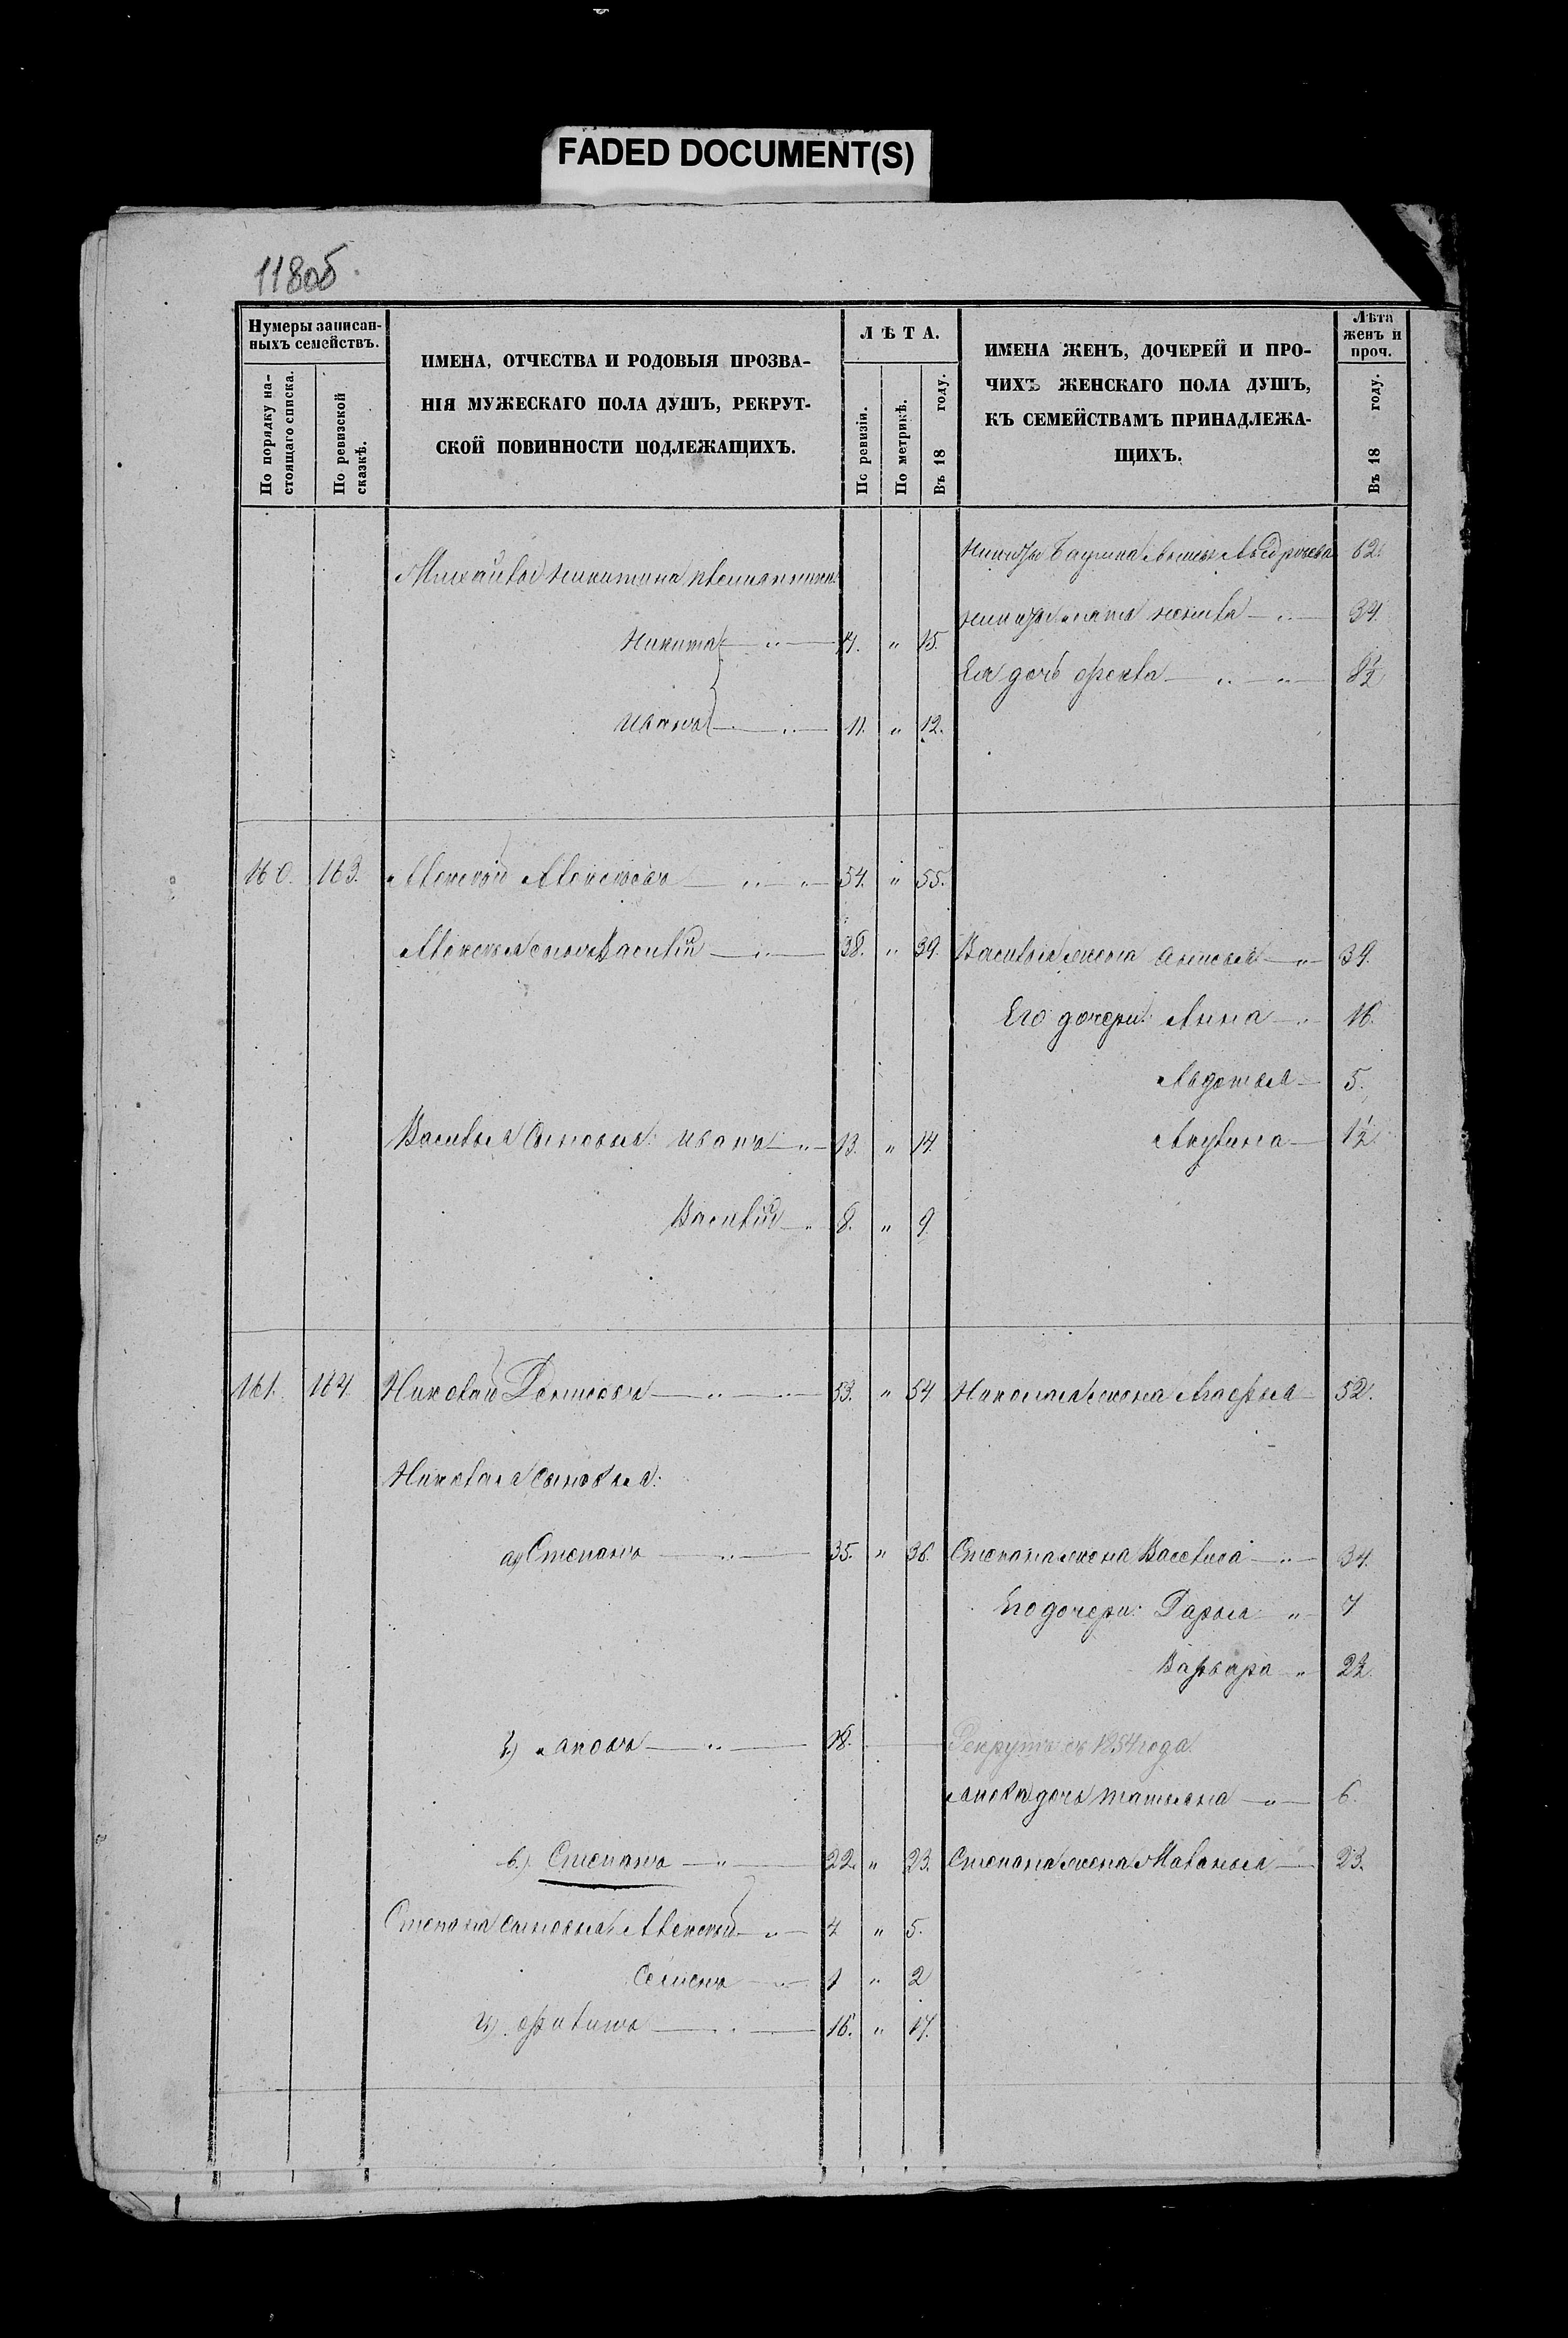 FADED DOCUMENT(S)
118об.
Нумеры записан-
ныхъ семействъ.
По порядку на-
стоящаго списка.
По ревизской
сказкѣ.
ИМЕНА, ОТЧЕСТВА И РОДОВЫЯ ПРОЗВА-
НІЯ МУЖЕСКАГО ПОЛА ДУШЪ, РЕКРУТ-
СКОЙ ПОВИННОСТИ ПОДЛЕЖАЩИХЪ.
ЛѢТА.
По ревизіи.
По метрикѣ.
Въ 18 году.
ИМЕНА ЖЕНЪ, ДОЧЕРЕЙ И ПРО-
ЧИХЪ ЖЕНСКАГО ПОЛА ДУШЪ,
КЪ СЕМЕЙСТВАМЪ ПРИНАДЛЕЖА-
ЩИХЪ.
Лѣта
женъ и
проч.
Въ 18 году.
62.
Михайла Никитина племянники
34.
Никита — „ — 14. „ 15.
Ея дочь Фекла — „ — „ 8½
Иванъ — „ — 11. „ 12.
160. 163. Алексѣй Алексѣевъ — „ — „ 54. „ 55.
Алексѣя сынъ Василій — „ — 38. „ 39. Василья жена Анисья — „ 39.
Его дочери: Анна — „ 16.
Авдотья — 5.
Василья сыновья: Иванъ — „ 13. „ 14. Акулина — 1½
Василій — „ 8. „ 9.
161. 164. Николай Денисовъ — „ — 53. „ 54 Николая жена Агафья — 52.
Николая сыновья:
а) Степанъ — „ — 35. „ 36. Степана жена Василиса — „ — 34.
Его дочери: Дарья — „ 7
Варвара — „
б) Яковъ — „ — 18. — Рекрутъ съ 1854 года.
Якова дочь Татьяна — „ 6.
в) Степанъ — „ — 22. „ 23. Степана жена Маланья — 23.
Степана сыновья: Алексѣй — „ 4 „ 5.
Семенъ — „ 1 „ 2
г) Филипъ — „ — 16. „ 17.